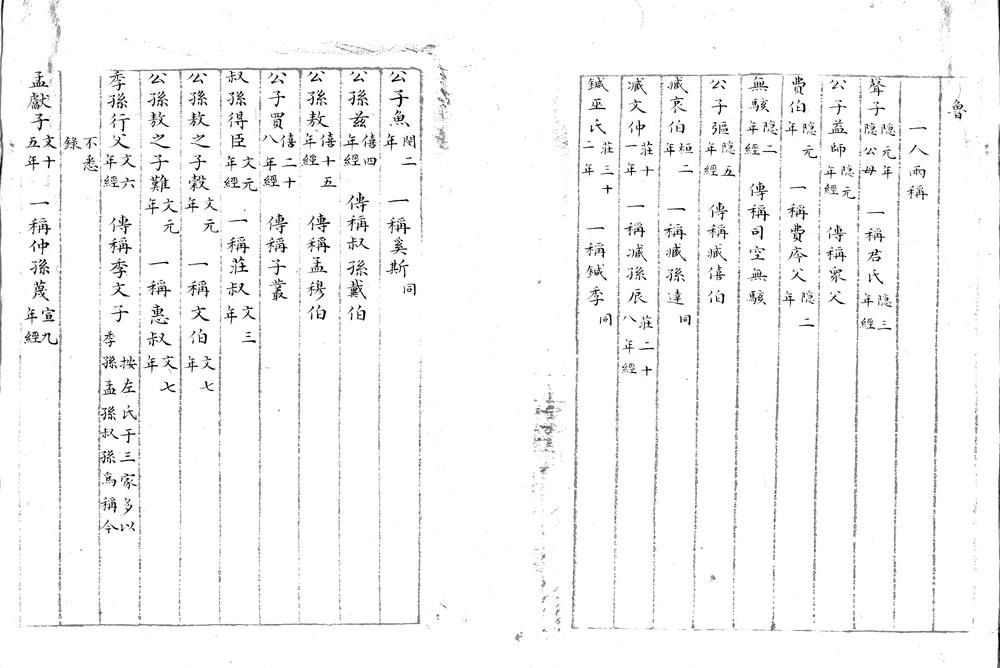 魯
一人兩稱
聲子隱元年隱公母　一稱君氏隱三年經
公子益師隱元年經　傳稱衆父
費伯隱元年　一稱費庈父隱二年
無駭隱二年經　傳稱司空無駭
公子彄隱五年經　傳稱臧僖伯
臧哀伯桓二年　一稱臧孫達同
臧文仲莊十一年　一稱臧孫辰莊二十八年經
鍼巫氏莊三十二年　一稱鍼季同
公子魚閔二年　一稱奚斯同
公孫兹僖四年經　傳稱叔孫戴伯
公孫敖僖十五年經　傳稱孟穆伯
公子買僖二十八年經　傳稱子叢
叔孫得臣文元年經　一稱莊叔文三年
公孫敖之子穀文元年　一稱文伯文七年
公孫敖之子難文元年　一稱惠叔文七年
季孫行父文六年經　傳稱季文子按左氏于三家多以季孫孟孫叔孫爲稱今
不悉錄
孟獻子文十五年　一稱仲孫蔑宣九年經